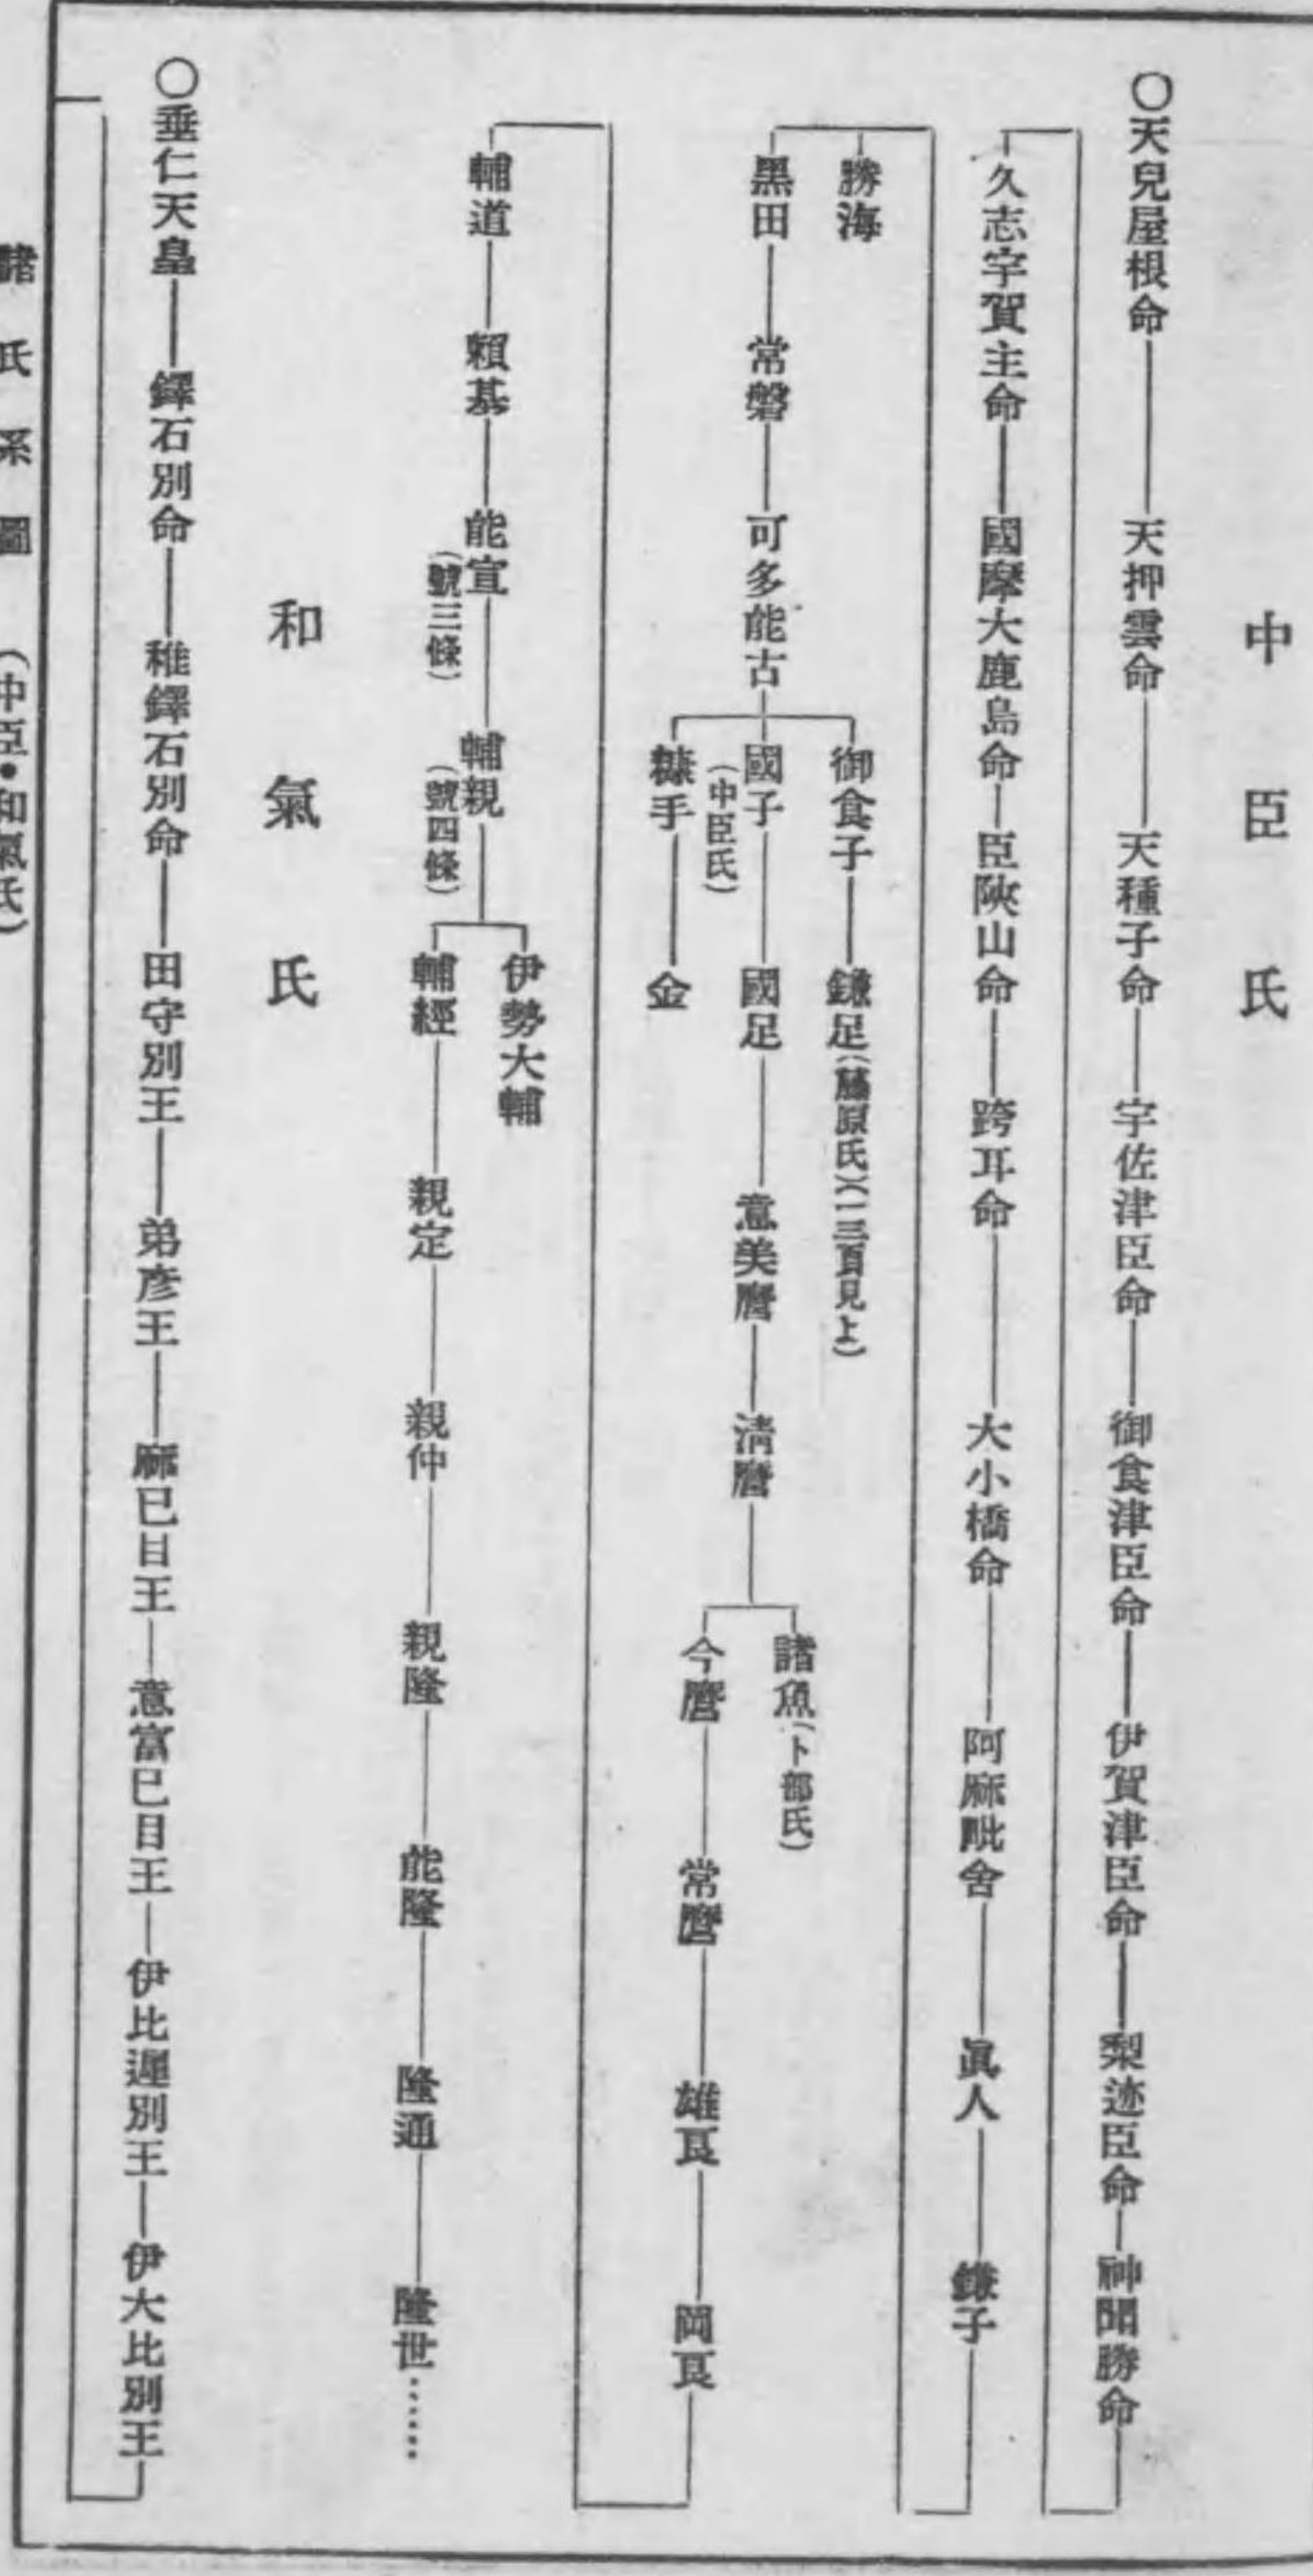 中臣氏
○天兒屋根命―天押雲命―天種子命―宇佐津臣命―御食津臣命―伊賀津臣命―梨迹臣命―神聞勝命
久志宇賀主命―國摩大鹿島命―臣陜山命―跨耳命―大小橋命―阿麻毗舍―眞人―鎌子
勝海
黑田―常磐―可多能古
御食子―鎌足(藤原氏)(一三頁見よ)
國子―國足―意美麿―淸麿
(中臣氏)
糠手―金
諸魚(卜部氏)
今麿―常麿―雄良―岡良
輔道―賴基―能宣―輔親
(號三條)
(號四條)
伊勢大輔
輔經―親定―親仲―親隆―能隆―隆通―隆世……
和氣氏
○垂仁天皇―鐸石別命―稚鐸石別命―田守別王―弟彥王―麻已目王―意富已目王―伊比遲別王―伊大比別王
諸氏系圖 (中臣・和氣氏)